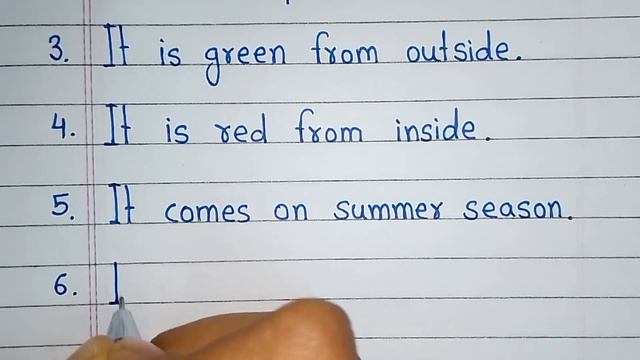 3. It is green from outside.
4. It is red from inside.
5. It comes on summer season.
6. I